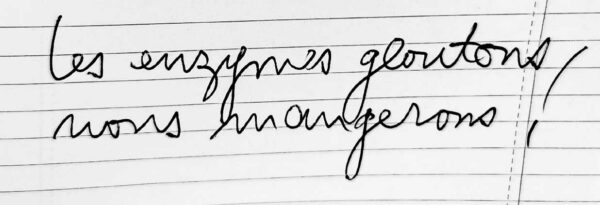 Les enzymes gloutons,
nous mangerons !